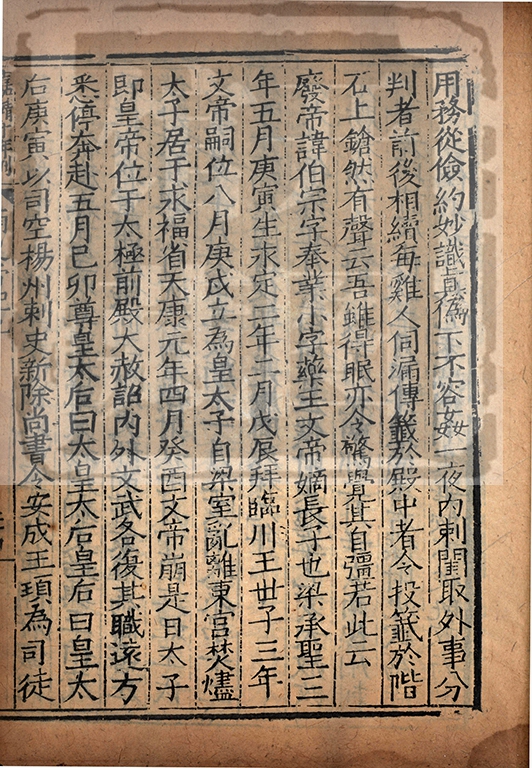 用務從儉約妙識真偽下不容姦一夜內刺閨取外事分
判者前後相續每雞人伺漏傳籤於殿中者令投籤於階
石上鎗然有聲云吾雖得眠亦令驚覺其自彊若此云
廢帝諱伯宗字奉業小字藥王文帝嫡長子也梁承聖三
年五月庚寅生永定二年二月戊辰拜臨川王世子三年
文帝嗣位八月庚戌立為皇太子自梁室亂離東宮焚燼
太子居于永福省天康元年四月癸酉文帝崩是日太子
即皇帝位于太極前殿大赦詔內外文武各復其職遠方
悉停奔赴五月己卯尊皇太后曰太皇太后皇后曰皇太
后庚寅以司空楊州刺史新除尚書令安成王頊為司徒